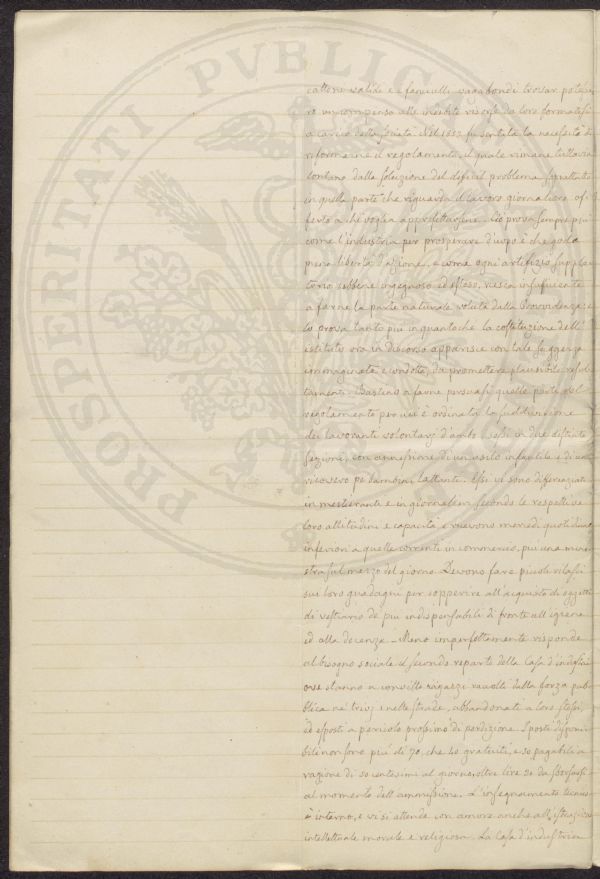 PROSPERITATI PVBLICAE
cattoni validi e i fanciulli vagabondi trovar potesse
ro un compenso alle inedite risorse da loro formatesi
a carico della società. Nel 1852 fu sentita la necessità di
riformarne il regolamento, il quale rimane tuttavia
lontano dalla soluzione del difficil problema soprattutto
in quella parte che riguarda il lavoro giornaliero of
ferto a chi voglia approfittarsene. Ciò prova sempre più
come l'industria per prosperare d'uopo è che goda
piena libertà d'azione, e come ogni artifizio supple
torio sebbene ingegnoso ed esteso, riesca insufficiente
a farne la parte naturale voluta dalla Provvidenza: e
lo prova tanto più in quantoche la costituzione dell'
istituto ora in discorso apparisce con tale saggezza
immaginata e condotta, da promettere plausibili resul
tamenti. Bastino a farne persuasi quelle parti del
regolamento per cui è ordinata la suddivisione
dei lavoranti volontarj d'ambo i sessi in due distinte
sezioni, con annessione di un asilo infantile e di un
ricovero pe' bambini lattanti. Essi vi sono differenziati
in mestieranti e in giornalieri secondo le respettive
loro attitudini e capacità e ricevono mercedi quotidiane
inferiori a quelle correnti in commercio, più una mine
stra sul mezzo del giorno. Devono fare piccoli rilassi
sui loro guadagni per sopperire all'acquisto di oggetti
di vestiario de' più indispensabili di fronte all'igiene
ed alla decenza. Meno imperfettamente risponde
al bisogno sociale il secondo reparto della Casa d'industria
ove stanno a convitto ragazzi raccolti dalla forza pub
blica ne' trivj e nelle strade, abbandonati a loro stessi,
ed esposti a pericolo prossimo di perdizione. I posti disponi
bili non sono più di 70, che 40 gratuiti, e 30 pagabili a
ragione di 50 centesimi al giorno, oltre lire 30 da sborsarsi
al momento dell'ammissione. L'insegnamento tecnico
è interno, e vi si attende con amore anche all'istruzione
intellettuale morale e religiosa. La Casa d'industria